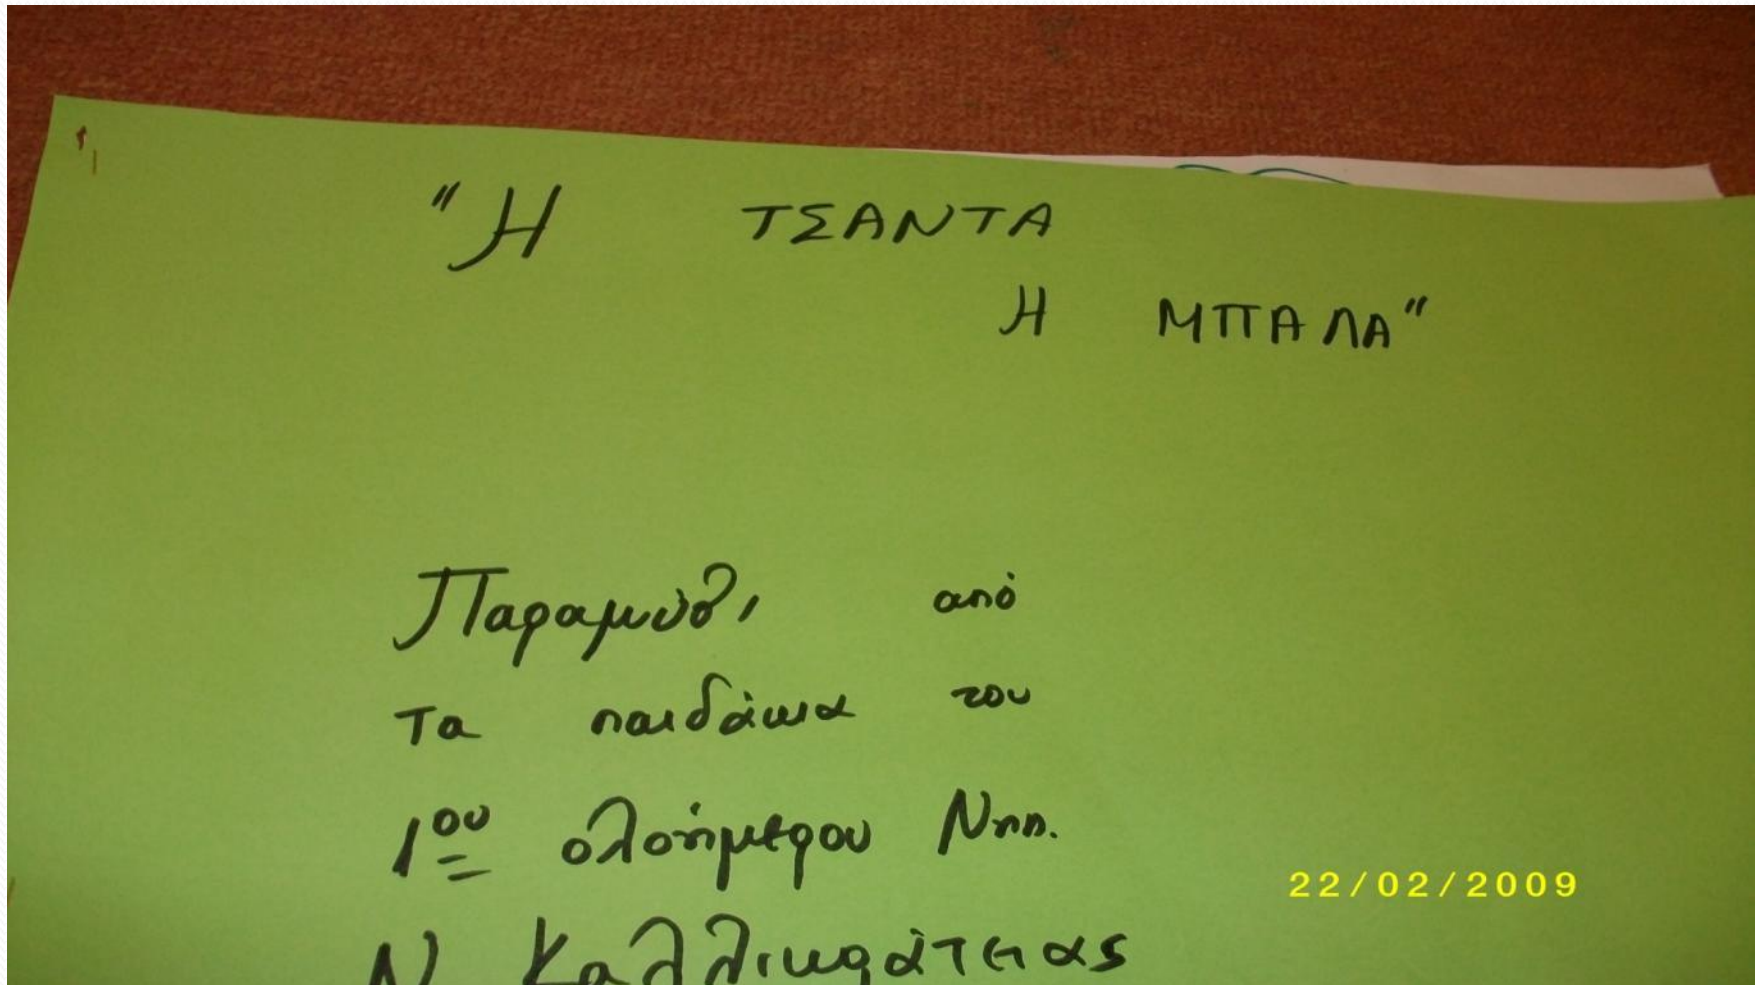 "Η ΤΣΑΝΤΑ
Η ΜΠΑΛΑ"
Παραμύθι από
Τα παιδάκια του
1ου ολοήμερου Νηπ.
Ν. Καλλικράτειας
22/02/2009